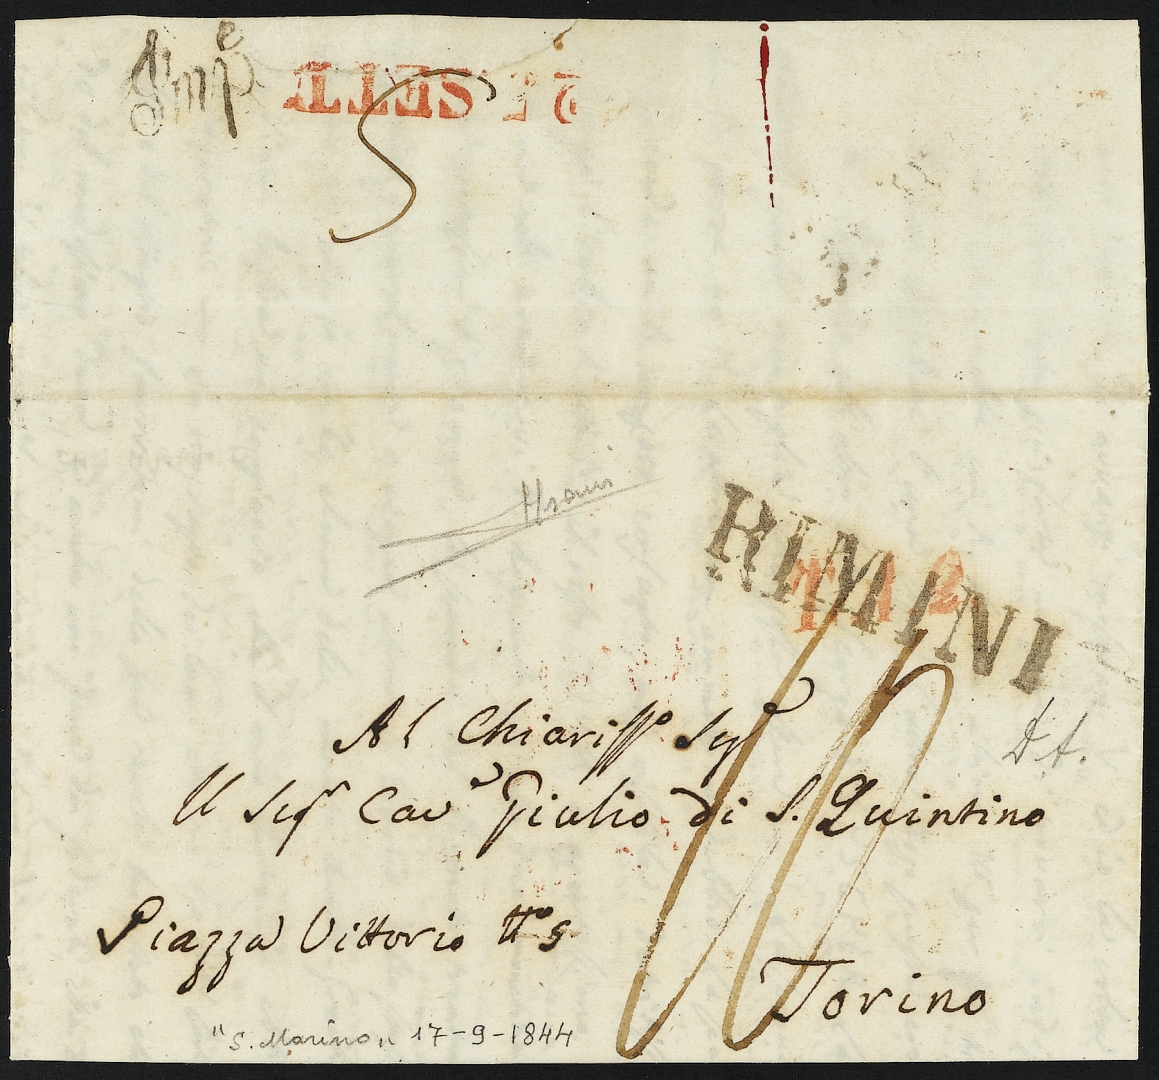 Imp.e
SETTE
5
RIMINI
T.A 2
Al Chiariss.o Sig.e
Il Sig.r Cav.e Giulio di S. Quintino
Piazza Vittorio N.o 5
Torino
D.A.
"S. Marino" 17-9-1844